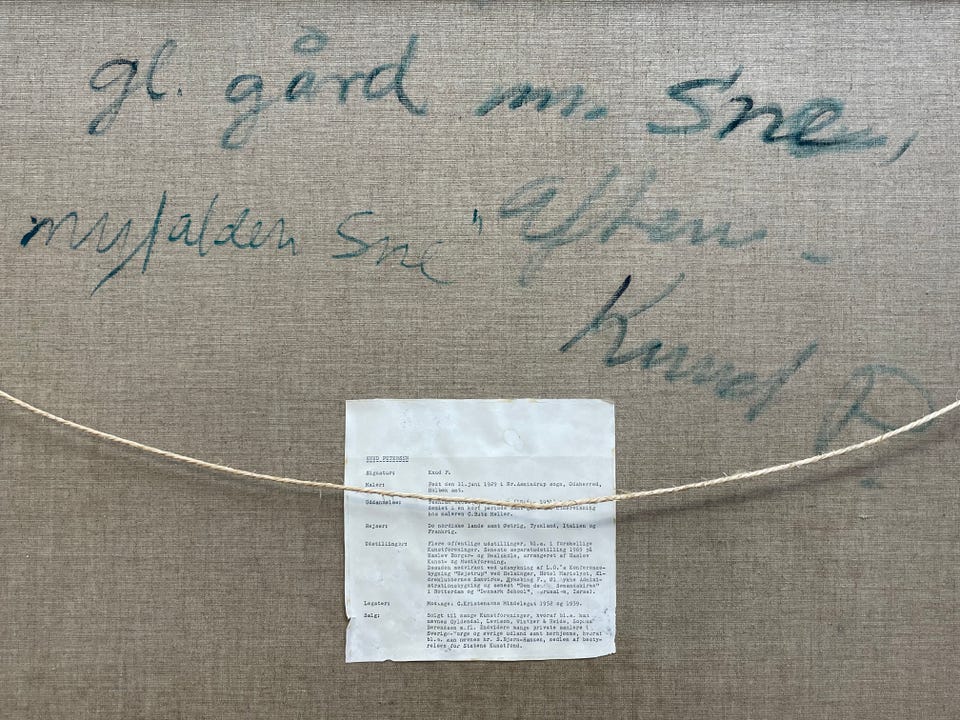 gl. gård m. Sne,
nyfalden Sne" Aften -
Knud P
KNUD PETERSEN
Signatur: Knud P.
Maler: Født den 11.juni 1929 i Nr.Asmindrup sogn, Odsherred,
Holbæk amt.
Uddannelse:
hos maleren C. Møller.
Rejser: De nordiske lande samt Østrig, Tyskland, Italien og
Frankrig.
Udstillinger: Flere offentlige udstillinger, bl.a. i forskellige
Kunstforeninger. Seneste separatudstilling 1969 på
Haslev Borger- og Realskole, arrangeret af Haslev
Kunst- og Musikforening.
Desuden medvirket ved udsmykning af L.O.'s Konference-
bygning "Højstrup" ved Helsingør, Hotel Marielyst, El-
Nykøbing F., Admini-
strationsbygning og senest "Den Sømandskirke"
i Rotterdam og "Denmark School", Jerusalem, Israel.
Legater: Modtaget C.Kristensens Mindelegat 1952 og 1959.
Salg: Solgt til mange Kunstforeninger, hvoraf bl.a. kan
nævnes Gyldendal, Levison,
Sørensen m.fl. Endvidere mange private samlere i
Sverige Norge og øvrige udland samt herhjemme, hvoraf
bl.a. kan nævnes hr. S.Bjørn-Hansen, medlem af besty-
relsen for Statens Kunstfond.